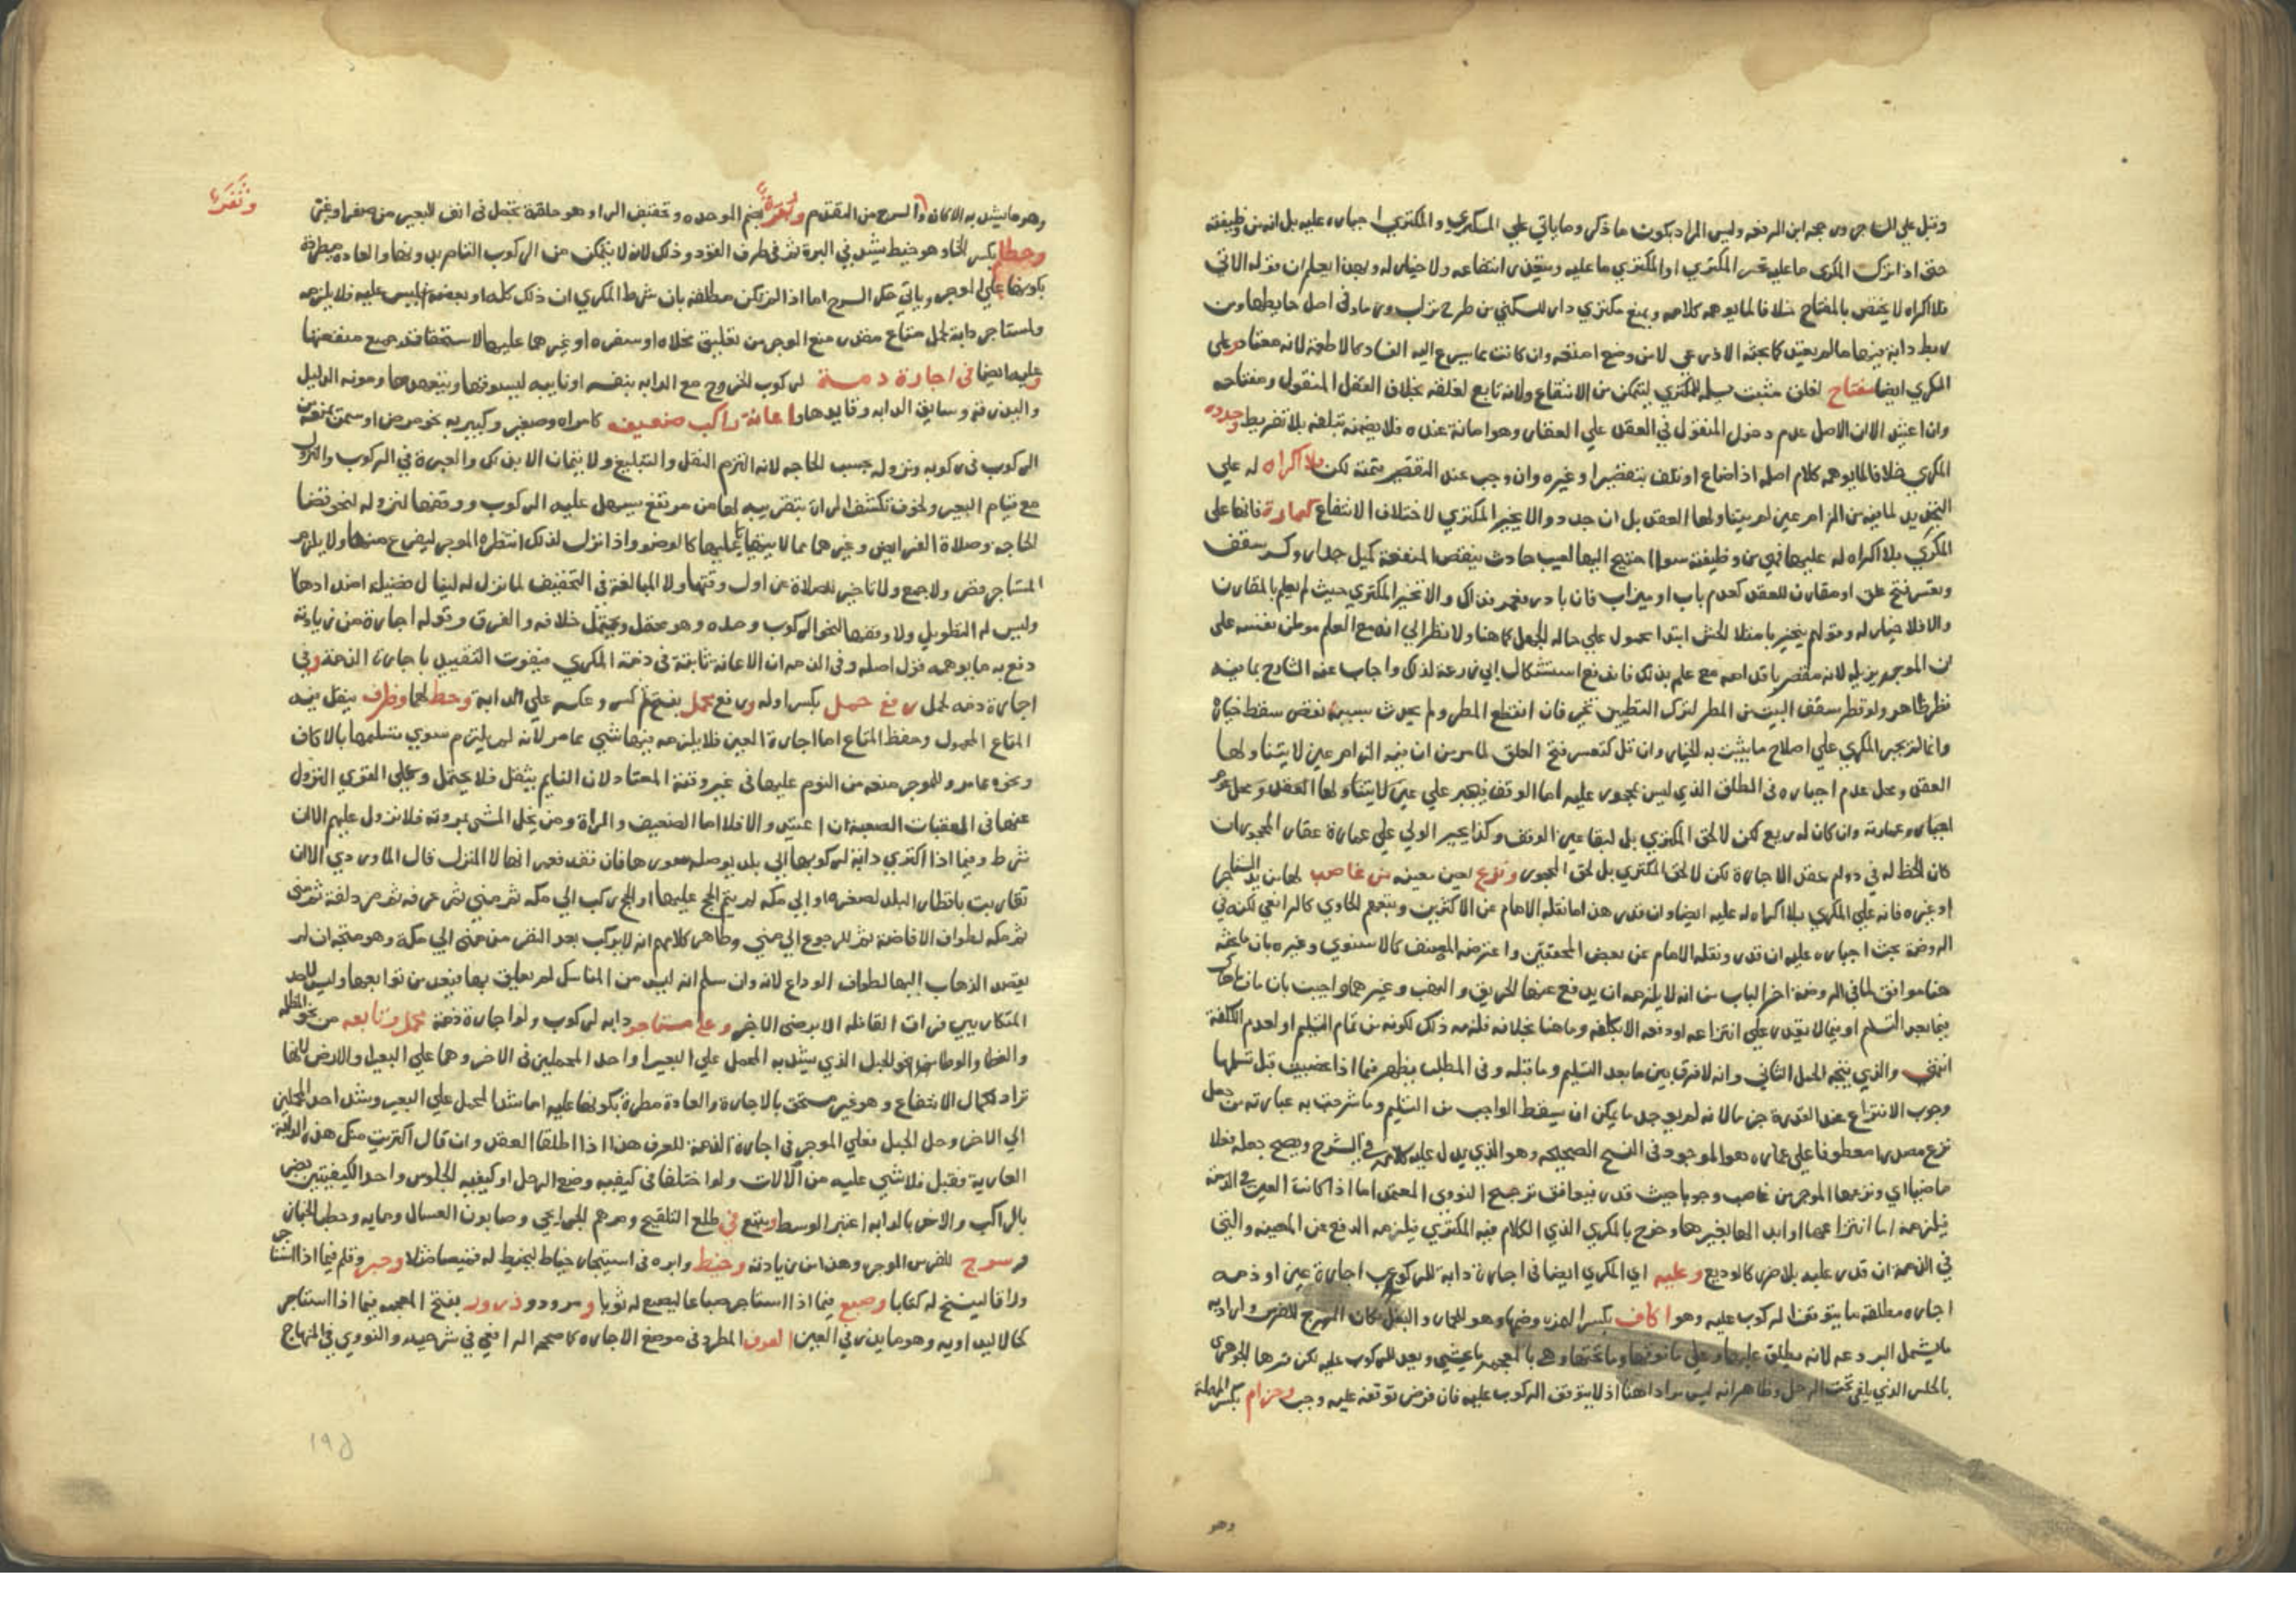 وقيل علي المستاجر وصححه ابن الرفعه وليس المراد بكون ما ذكر وما ياتي علي المكري والمكتري اجباره عليه بل انه من وظيفته
حتى اذا ترك المكري ما عليه تخير المكتري او المكتري ما عليه وتعذر انتفاعه ولا خيار له وبهذا يعلم ان قوله الاتي
بلا اكراه لا يختص بالمفتاح خلافا لما يوهمه كلامه ويمنع مكتري دار للسكني من طرح تراب ورماد في اصل حايطها ومن
ربط دابة فيها ما لم يعتد كما بحثه الاذرعي لا من وضع امتعة وان كانت مما يسرع اليه الفساد كالاطعمة لانه معتاد وعلي
المكري ايضا مفتاح لغلق مثبت يسلمه للمكتري ليتمكن من الانتفاع ولانه تابع لغلقه بخلاف القفل المنقول ومفتاحه
وان اعتيد لان الاصل عدم دخول المنقول في العقد علي العقار وهو امانة عنده فلا يضمنه بتلفه بلا تفريط وجدده
المكري خلافا لما يوهمه كلام اصله اذا ضاع او تلف بتقصير او غيره وان وجب عند التقصير قيمته لكن بلا اكراه له علي
التجديد لما فيه من الزام عين لم يتناولها العقد بل ان جدد والا يخير المكتري لاختلاف الانتفاع كعمارة فانها على
المكري بلا اكراه له عليها فهي من وظيفته سوا احتيج اليها لعيب حادث ينقص المنفعة كميل جدار وكسر سقف
وتعسر فتح غلق او مقارن للعقد كعدم باب او ميزاب فان بادر فعمر فذاك والا تخير المكتري حيث لم يعلم بالمقارن
والا فلا خيار له وقولهم يتخير بامتلا الحش ابتدا محمول علي حاله الجهل كما هنا ولا نظر الي انه مع العلم موطن نفسه على
ان الموجر يزيله لانه مقصر باقدامه مع علمه بذلك فاندفع استشكال ابي زرعة لذلك واجاب عنه الشارح بما فيه
نظر ظاهر ولو قطر سقف البيت من المطر لترك التطيين تخير فان انقطع المطر ولم يحدث بسببه نقص سقط خياره
وانما لم يجبر المكري علي اصلاح ما يثبت به الخيار وان قل كتعسر فتح الغلق لما مر من ان فيه الزام عين لا يتناولها
العقد ومحل عدم اجباره في الطلق الذي ليس بمحجور عليه اما الوقف فيجبر علي عين لا يتناولها العقد ومحل
اجباره عمارته وان كان له ريع لكن لا لحق المكتري بل لبقا عين الوقف وكذا يجبر الولي علي عمارة عقار المحجور ان
كان الحظ له في دوام عقد الاجارة لكن لا لحق المكتري بل لحق المحجور ونزع لعين معينه من غاصب لها من يد المستاجر
او غيره فانه علي المكري بلا اكراه له عليه ايضا وان قدر هذا ما نقله الامام عن الاكثرين وتبعهم الحاوي كالرافعي لكنه في
الروضة بحث اجباره عليه ان قدر ونقله الامام عن بعض المحققين واعترضه المصنف كالاسنوي وغيره بان ما بحثه
هنا موافق لما في الروضة اخر الباب من انه لا يلزمه ان يدفع عنها الحريق والنهب وغيرهما واجيب بان ما هناك
فيما بعد التسليم او فيما لا يقدر علي انتزاعه او دفعه الا بكلفه وما هنا بخلافه فلزمه ذلك لكونه من تمام التسليم او لعدم الكلفة
انتهى والذي يتجه الحمل الثاني وانه لا فرق بين ما بعد التسليم وما قبله وفي المطلب يظهر فيما اذا غصبت قبل تسلمها
وجوب الانتزاع عند القدرة جزما لانه لم يوجد ما يمكن ان يسقط الواجب من التسليم وما شرحت به عبارته من جعل
نزع مصدرا معطوفا على عمارة هو الموجود في النسخ الصحيحه وهو الذي يدل عليه كلامه في الشرح ويصح جعله فعلا
ماضيا اي ونزعها الموجر من غاصب وجوبا حيث قدر فيوافق ترجيح النووي المعتمد اما اذا كانت العين في الذمة
فيلزمه اما انتزاعها او ابدالها بغيرها وخرج بالمكري الذي الكلام فيه المكتري فيلزمه الدفع عن المعينه والتي
في الذمة ان قدر عليه بلا ضرر كالوديع وعليه اي المكري ايضا في اجارة دابة للركوب اجارة عين او ذمه
اجاره مطلقه ما يتوقف الركوب عليه وهو اكاف بكسر الهمزه وضمها وهو للحمار والبغل مكان السرج للفرس واراد به
ما يشمل البردعه لانه يطلق عليها وعلي ما فوقها وما تحتها وهي بالمعجمه ما يحشي ويعد للركوب عليه لكن فسرها الجوهري
بالحلس الذي يلقي تحت الرحل وظاهر انه ليس مرادا هنا اذ لا يتوقف الركوب عليه فان فرض توقفه عليه وجب وحزام بكسر المهملة
وهو
وهو ما يشد به الاكاف او السرج من المقدم وبرة بضم الموحده وتخفيف الرا وهو حلقة تجعل في انف البعير من صفر او غيره
وثفر
وخطام بكسر الخا وهو خيط يشد في البرة ثم في طرف المقود وذلك لانه لا يتمكن من الركوب التام بدونها والعاده مطردة
بكونها علي الموجر وياتي حكم السرج اما اذا لم تكن مطلقه بان شرط المكري ان ذلك كله او بعضه ليس عليه فلا يلزمه
ولو استاجر دابة لحمل متاع مقدر منع الموجر من تعليق مخلاه او سفره او غيرهما عليها لاستحقاقه جميع منفعتها
وعليه ايضا في اجارة ذمة لركوب الخروج مع الدابه بنفسه او نايبه ليسوقها ويتعهدها ومونه الدليل
والبدرقة وسايق الدابه وقايدها واعانة راكب ضعيف كامراه وصغير وكبير به نحو مرض او سمن يمنعه من
الركوب في ركوبه ونزوله بحسب الحاجه لانه التزم النقل والتبليغ ولا يتمان الا بذلك والعبرة في الركوب والنزول
مع قيام البعير ولخوف تكشف المراة بتقريبه لها من مرتفع يسهل عليه الركوب ووقفها لنزوله لنحو قضا
الحاجه وصلاة الفرايض وغيرهما مما لا يتهيا عليها كالوضو واذا نزل لذلك انتظره الموجر ليفرغ منها ولا يلزم
المستاجر قصر ولا جمع ولا تاخير للصلاة عن اول وقتها ولا المبالغة في التخفيف لما نزل له لينال فضيله اضدادها
وليس له التطويل ولا وقفها لنحو الركوب وحده وهو محتمل ويحتمل خلافه والفرق وقوله اجارة من زيادته
دفع به ما يوهمه قول اصله وفي الذمه ان الاعانة ثابتة في ذمة المكري فيفوت التقييد باجارة الذمة وفي
اجارة ذمه لحمل رفع حمل بكسر اوله ورفع محمل بفتح ثم كسر وعكسه علي الدابة وحط لهما وظرف ينقل فيه
المتاع المحمول وحفظ المتاع اما اجارة العين فلا يلزمه فيها شي مما مر لانه لم يلتزم سوي تسليمها بالاكاف
ونحوه مما مر وللموجر منعه من النوم عليها في غير وقته المعتاد لان النايم يثقل فلا يحتمل وعلي القوي النزول
عنها في العقبات الصعبة ان اعتيد والا فلا اما الضعيف والمراة ومن يخل المشي بمروته فلا نزول عليهم الا ان
شرط وفيما اذا اكتري دابة لركوبها الي بلد يوصله سورها فان فقد فعمرانها لا المنزل قال الماوردي الا ان
تقاربت باقطار البلد لصغرها او الي مكه لم يتم الحج عليها او للحج ركب الي مكه ثم مني ثم عرفه ثم مزدلفة ثم مني
ثم مكه لطواف الافاضة ثم للرجوع الي مني وظاهر كلامهم انه لا يركب بعد النفر من مني الي مكة وهو متجه ان لم
يقصد الذهاب اليها لطواف الوداع لانه وان سلم انه ليس من المناسك لم يعلق بها فيعد من توابعها وليس لاحد
المتكاريين فراق القافله الا برضى الاخر وعلى مستاجر دابه لركوب ولو اجارة ذمة محمل وتابعه من نحو المظلة
والغطا والوطا ونحو الحبل الذي يشد به المحمل علي البعير او احد المحملين في الاخر وهما علي البعير او الارض لانها
تراد لكمال الانتفاع وهو غير مستحق بالاجارة والعادة مطردة بكونها عليه اما شد المحمل علي البعير وشد احد المحملين
الي الاخر وحل الحبل فعلي الموجر في اجارة الذمة للعرف هذا اذا اطلقا العقد وان قال اكتريت منك هذه الدابة
العارية فقبل فلا شي عليه من الآلات ولو اختلفا في كيفيه وضع الرحل او كيفيه الجلوس واحد الكيفيتين يضر
بالراكب والاخر بالدابه اعتبر الوسط ويتبع في طلع التلقيح ومرهم الجرايحي وصابون الغسال ومايه وحطب الخباز
وسرج للفرس الموجر وهذا من زيادته وخيط وابره في استيجار خياط ليخيط له قميصا مثلا وحبر وقلم فيما اذا استاجر
وراقا لينسخ له كتابا وصبغ فيما اذا استاجر صباغا ليصبغ له ثوبا ومرود وذرور بفتح المعجمه فيما اذا استاجر
كحالا ليداويه وهو ما يذر في العين العرف المطرد في موضع الاجاره كما صححه الرافعي في شرحيه والنووي في المنهاج
١٩٥